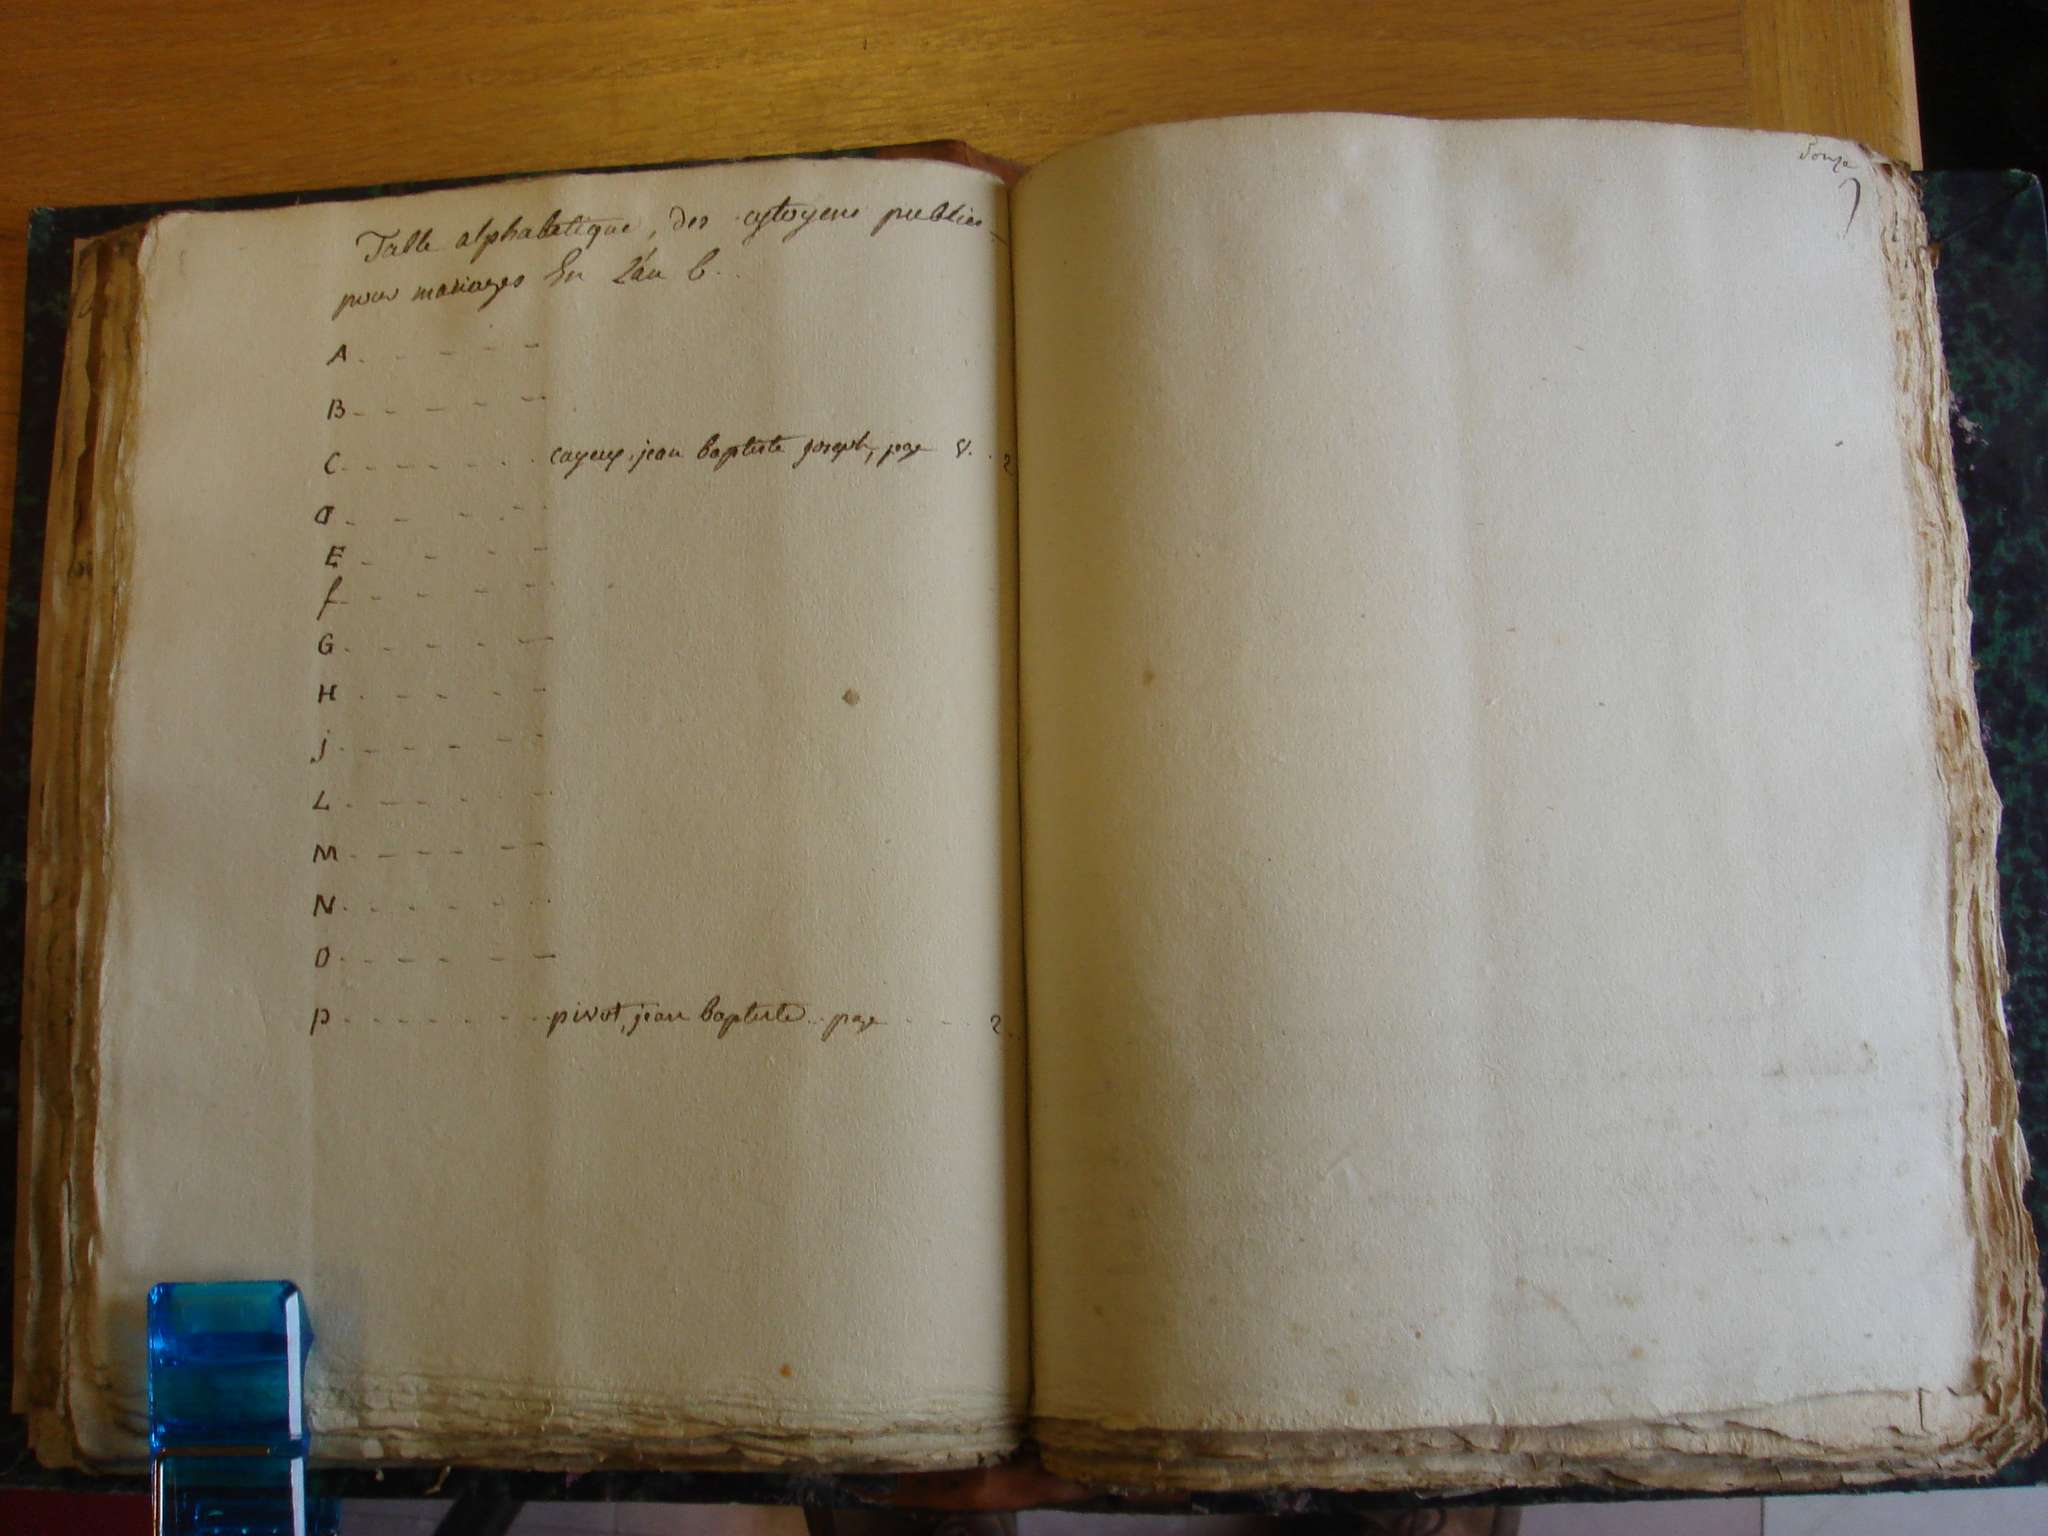 Table alphabetique, des cytoyens publiés
pour mariages En L'an 6..
A . - - - -
B - - - - -
C. - - - - . cayeux, jean baptiste joseph, page V. . 2
D . - - - -
E . - - - -
f - - - - -
G . - - - -
H . - - - -
j . - - - -
L . - - - -
M . - - - -
N . - - - -
O . - - - -
P . - - - - . pivot, jean baptiste . . page . . . . 2.
Douze